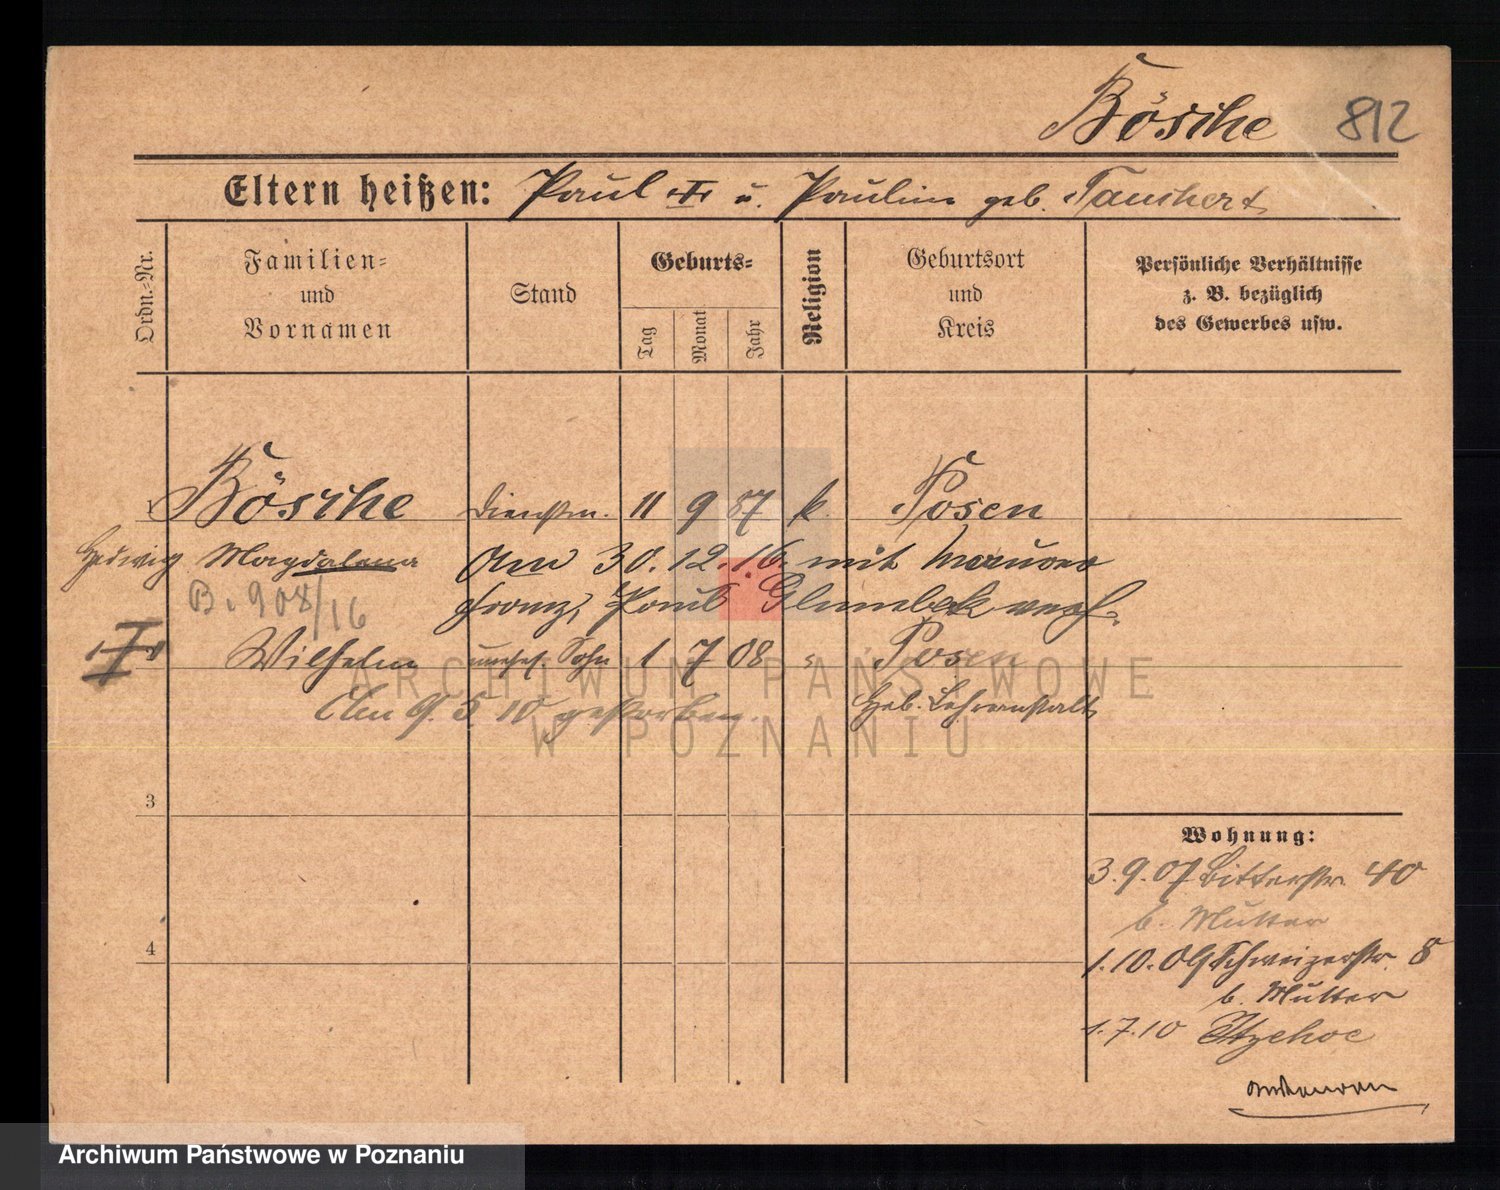 Bösche 812
Eltern heißen: Paul † u. Pauline geb. Tauchert
Ordn.-Nr.
Familien-
und
Vornamen
Stand
Geburts-
Tag
Monat
Jahr
Religion
Geburtsort
und
Kreis
Persönliche Verhältnisse
z. B. bezüglich
des Gewerbes usw.
Bösche Dienstm. 11 9 87 k. Posen
Hedwig Magdalena Am 30.12.16. mit
Franz, Paul verh.
B. 908/16
† Wilhelm unehel. Sohn 1 7 08 " Posen
Am 9. 5 10 gestorben. Heb. Lehranstalt
3
4
Wohnung:
3.9.07 Bitterstr. 40
b. Mutter
1.10.09 Schweizerstr. 8
b. Mutter
1.7.10 Itzehoe
ARCHIWUM PAŃSTWOWE
W POZNANIU
Archiwum Państwowe w Poznaniu